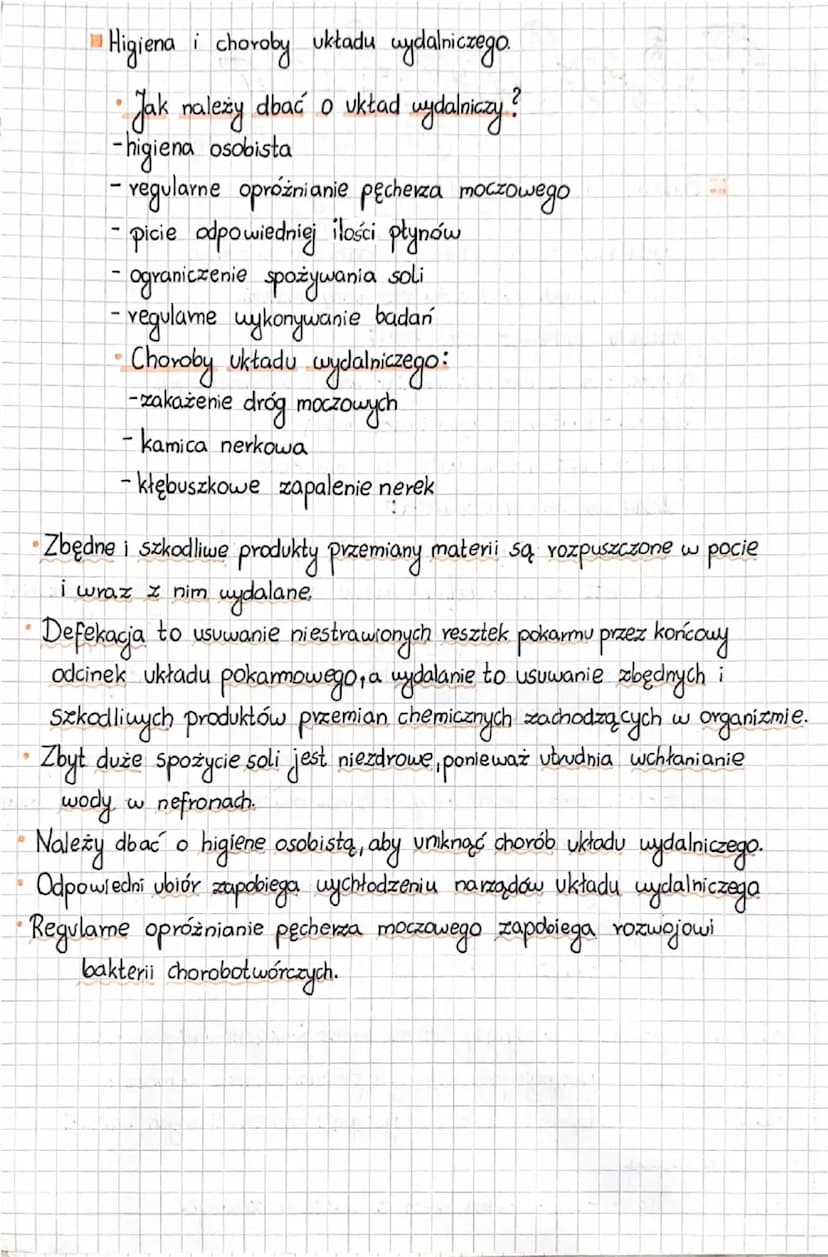 Higiena i choroby układu wydalniczego.
• Jak należy dbać o układ wydalniczy?
- higiena osobista
- regularne opróżnianie pęcherza moczowego
- picie odpowiedniej ilości płynów
- ograniczenie spożywania soli
- regularne wykonywanie badań
• Choroby układu wydalniczego:
- zakażenie dróg moczowych
- kamica nerkowa
- kłębuszkowe zapalenie nerek
• Zbędne i szkodliwe produkty przemiany materii są rozpuszczone w pocie
i wraz z nim wydalane.
• Defekacja to usuwanie niestrawionych resztek pokarmu przez końcowy
odcinek układu pokarmowego, a wydalanie to usuwanie zbędnych i
szkodliwych produktów przemian chemicznych zachodzących w organizmie.
• Zbyt duże spożycie soli jest niezdrowe, ponieważ utrudnia wchłanianie
wody w nefronach.
• Należy dbać o higienę osobistą, aby uniknąć chorób układu wydalniczego.
• Odpowiedni ubiór zapobiega wychłodzeniu narządów układu wydalniczega
• Regularne opróżnianie pęcherza moczowego zapobiega rozwojowi
bakterii chorobotwórczych.